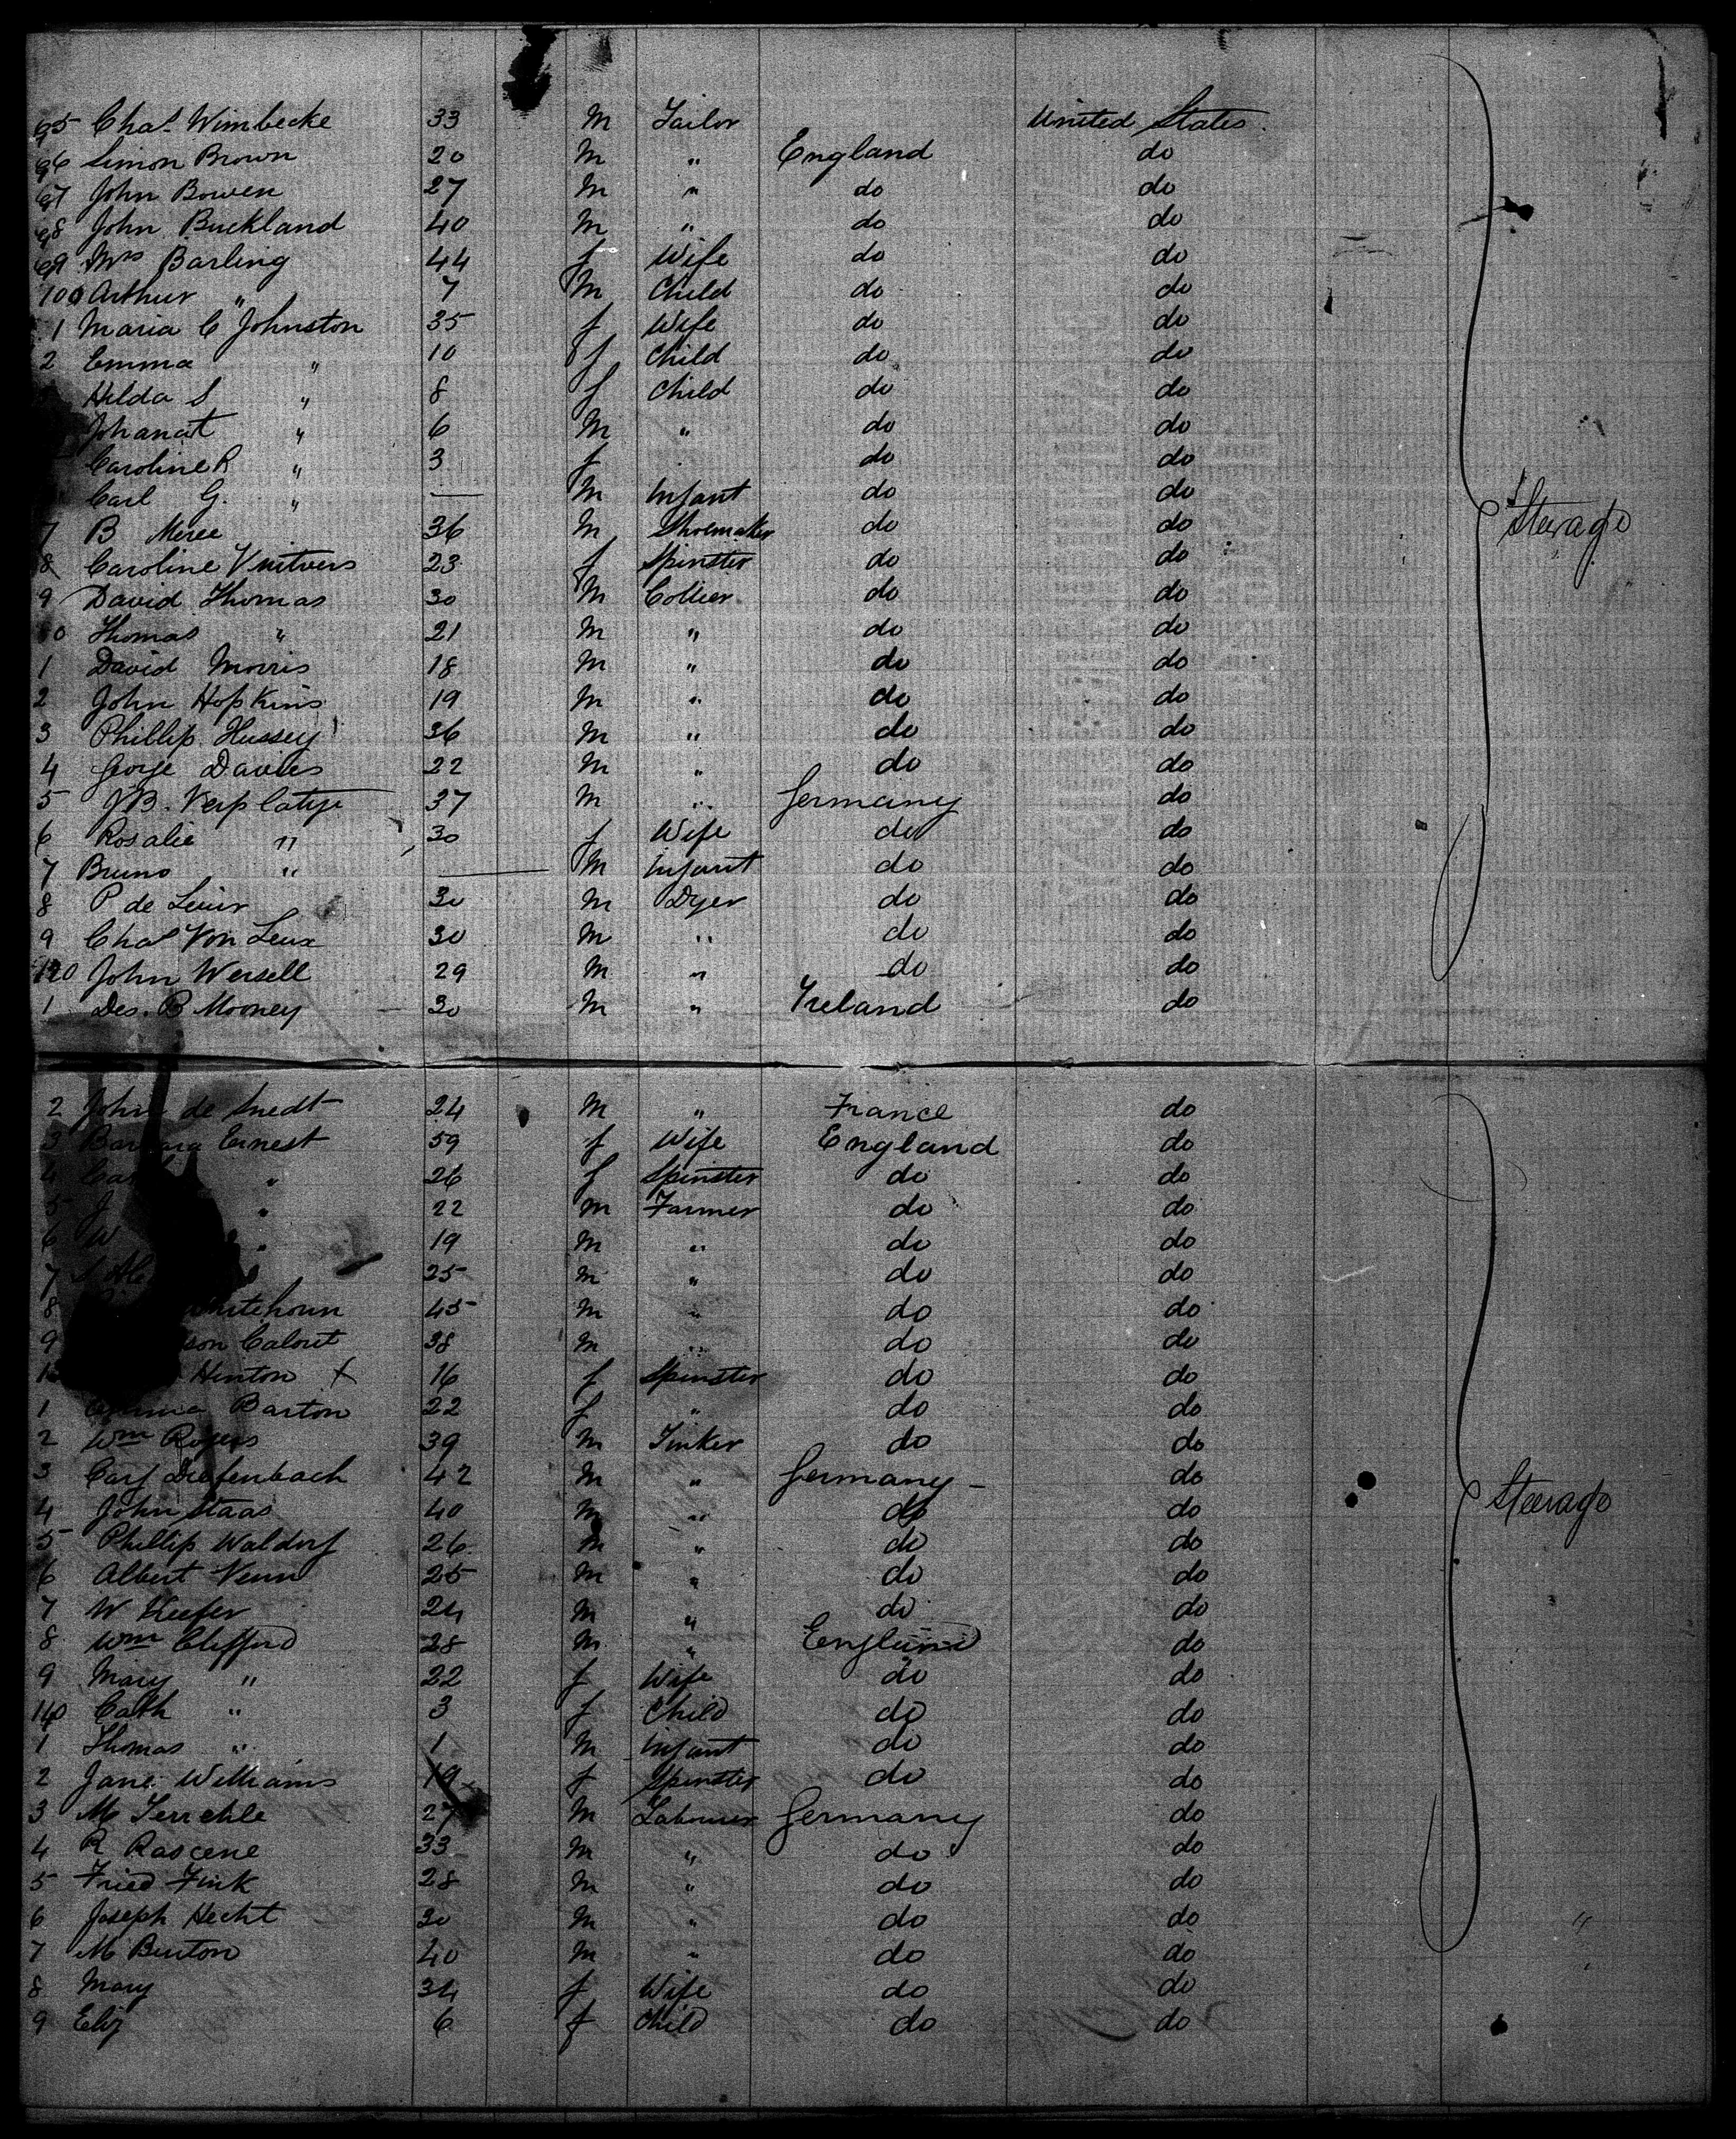 95 Chas Wimbecke 33 M Tailor United States
96 Simon Brown 20 M " England do
97 John Bowen 27 M " do do
98 John Buckland 40 M " do do
99 Mrs Barling 44 f Wife do do
100 Arthur " 7 M Child do do
1 Maria C Johnston 35 f Wife do do
2 Emma " 10 f Child do do
Hilda S " 8 f Child do do
" 6 M " do do
Caroline R " 3 f do do
Carl G. " — M Infant do do
7 B 36 M Shoemaker do do
8 Caroline 23 f Spinster do do
9 David Thomas 30 M Collier do do
10 Thomas " 21 M " do do
1 David Morris 18 M " do do
2 John Hopkins 19 M " do do
3 Phillip Hussey 36 M " do do
4 George Davies 22 M " do do
5 J B. 37 M " Germany do
6 Rosalie " 30 f Wife do do
7 Bruno " — M Infant do do
8 P de 30 M Dyer do do
9 Chas Von 30 M " do do
120 John Wersell 29 M " do do
1 Des. B Mooney 30 M " Ireland do
Steerage
2 John de Smedt 24 M " France do
3 Barbara Ernest 59 f Wife England do
4 " 26 f Spinster do do
5 J " 22 M Farmer do do
6 W " 19 M " do do
7 25 M " do do
8 45 M " do do
9 38 M " do do
Hinton X 16 f Spinster do do
1 Barton 22 f " do do
2 Wm Rogers 39 M Tinker do do
3 Diefenbach 42 M " Germany do
4 John Staas 40 M " do do
5 Phillip Waldorf 26 M " do do
6 Albert Venn 25 M " do do
7 W Keefer 24 M " do do
8 Wm Clifford 28 M " England do
9 Mary " 22 f Wife do do
140 Cath " 3 f Child do do
1 Thomas " 1 M Infant do do
2 Jane Williams 19 f Spinster do do
3 M 27 M Labourer Germany do
4 R Rascene 33 M " do do
5 Fried Fink 28 M " do do
6 Joseph Hecht 30 M " do do
7 M Benton 40 M " do do
8 Mary 34 f Wife do do
9 Eliz 6 f Child do do
Steerage